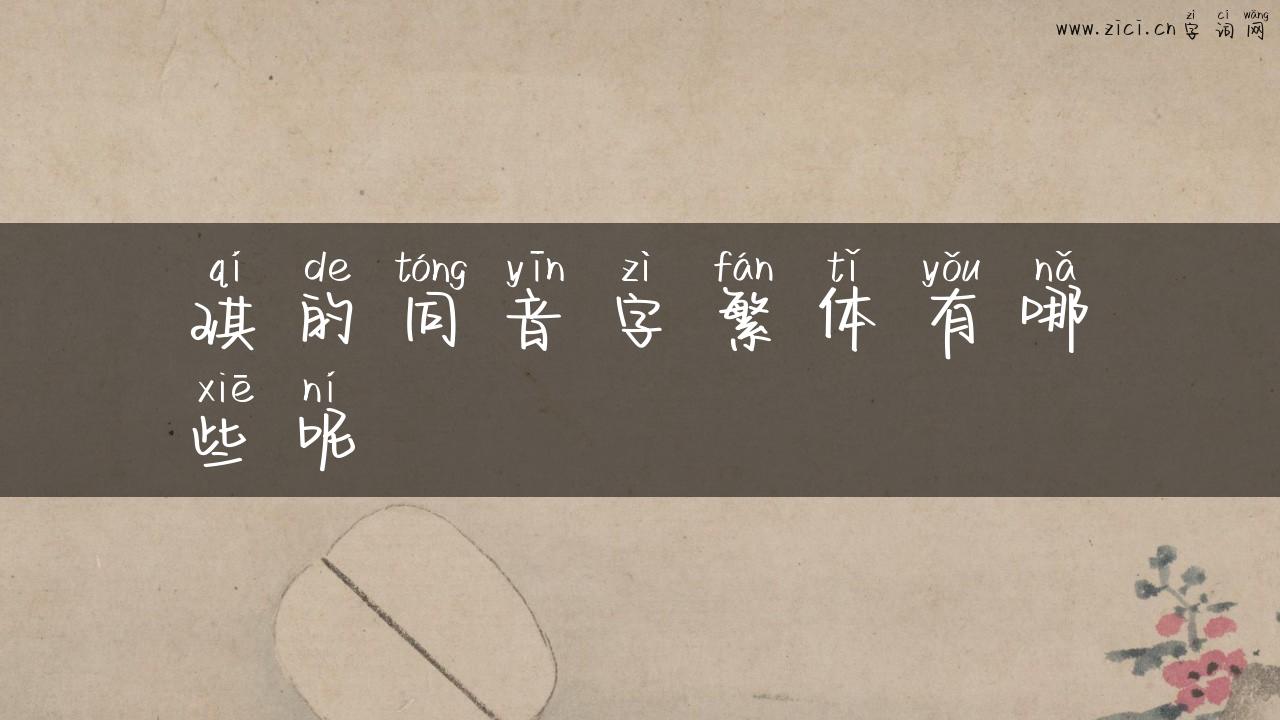 www.zici.cn zì cí wǎng
字词网
qí de tóng yīn zì fán tǐ yǒu nǎ
琪的同音字繁体有哪
xiē ní
些呢